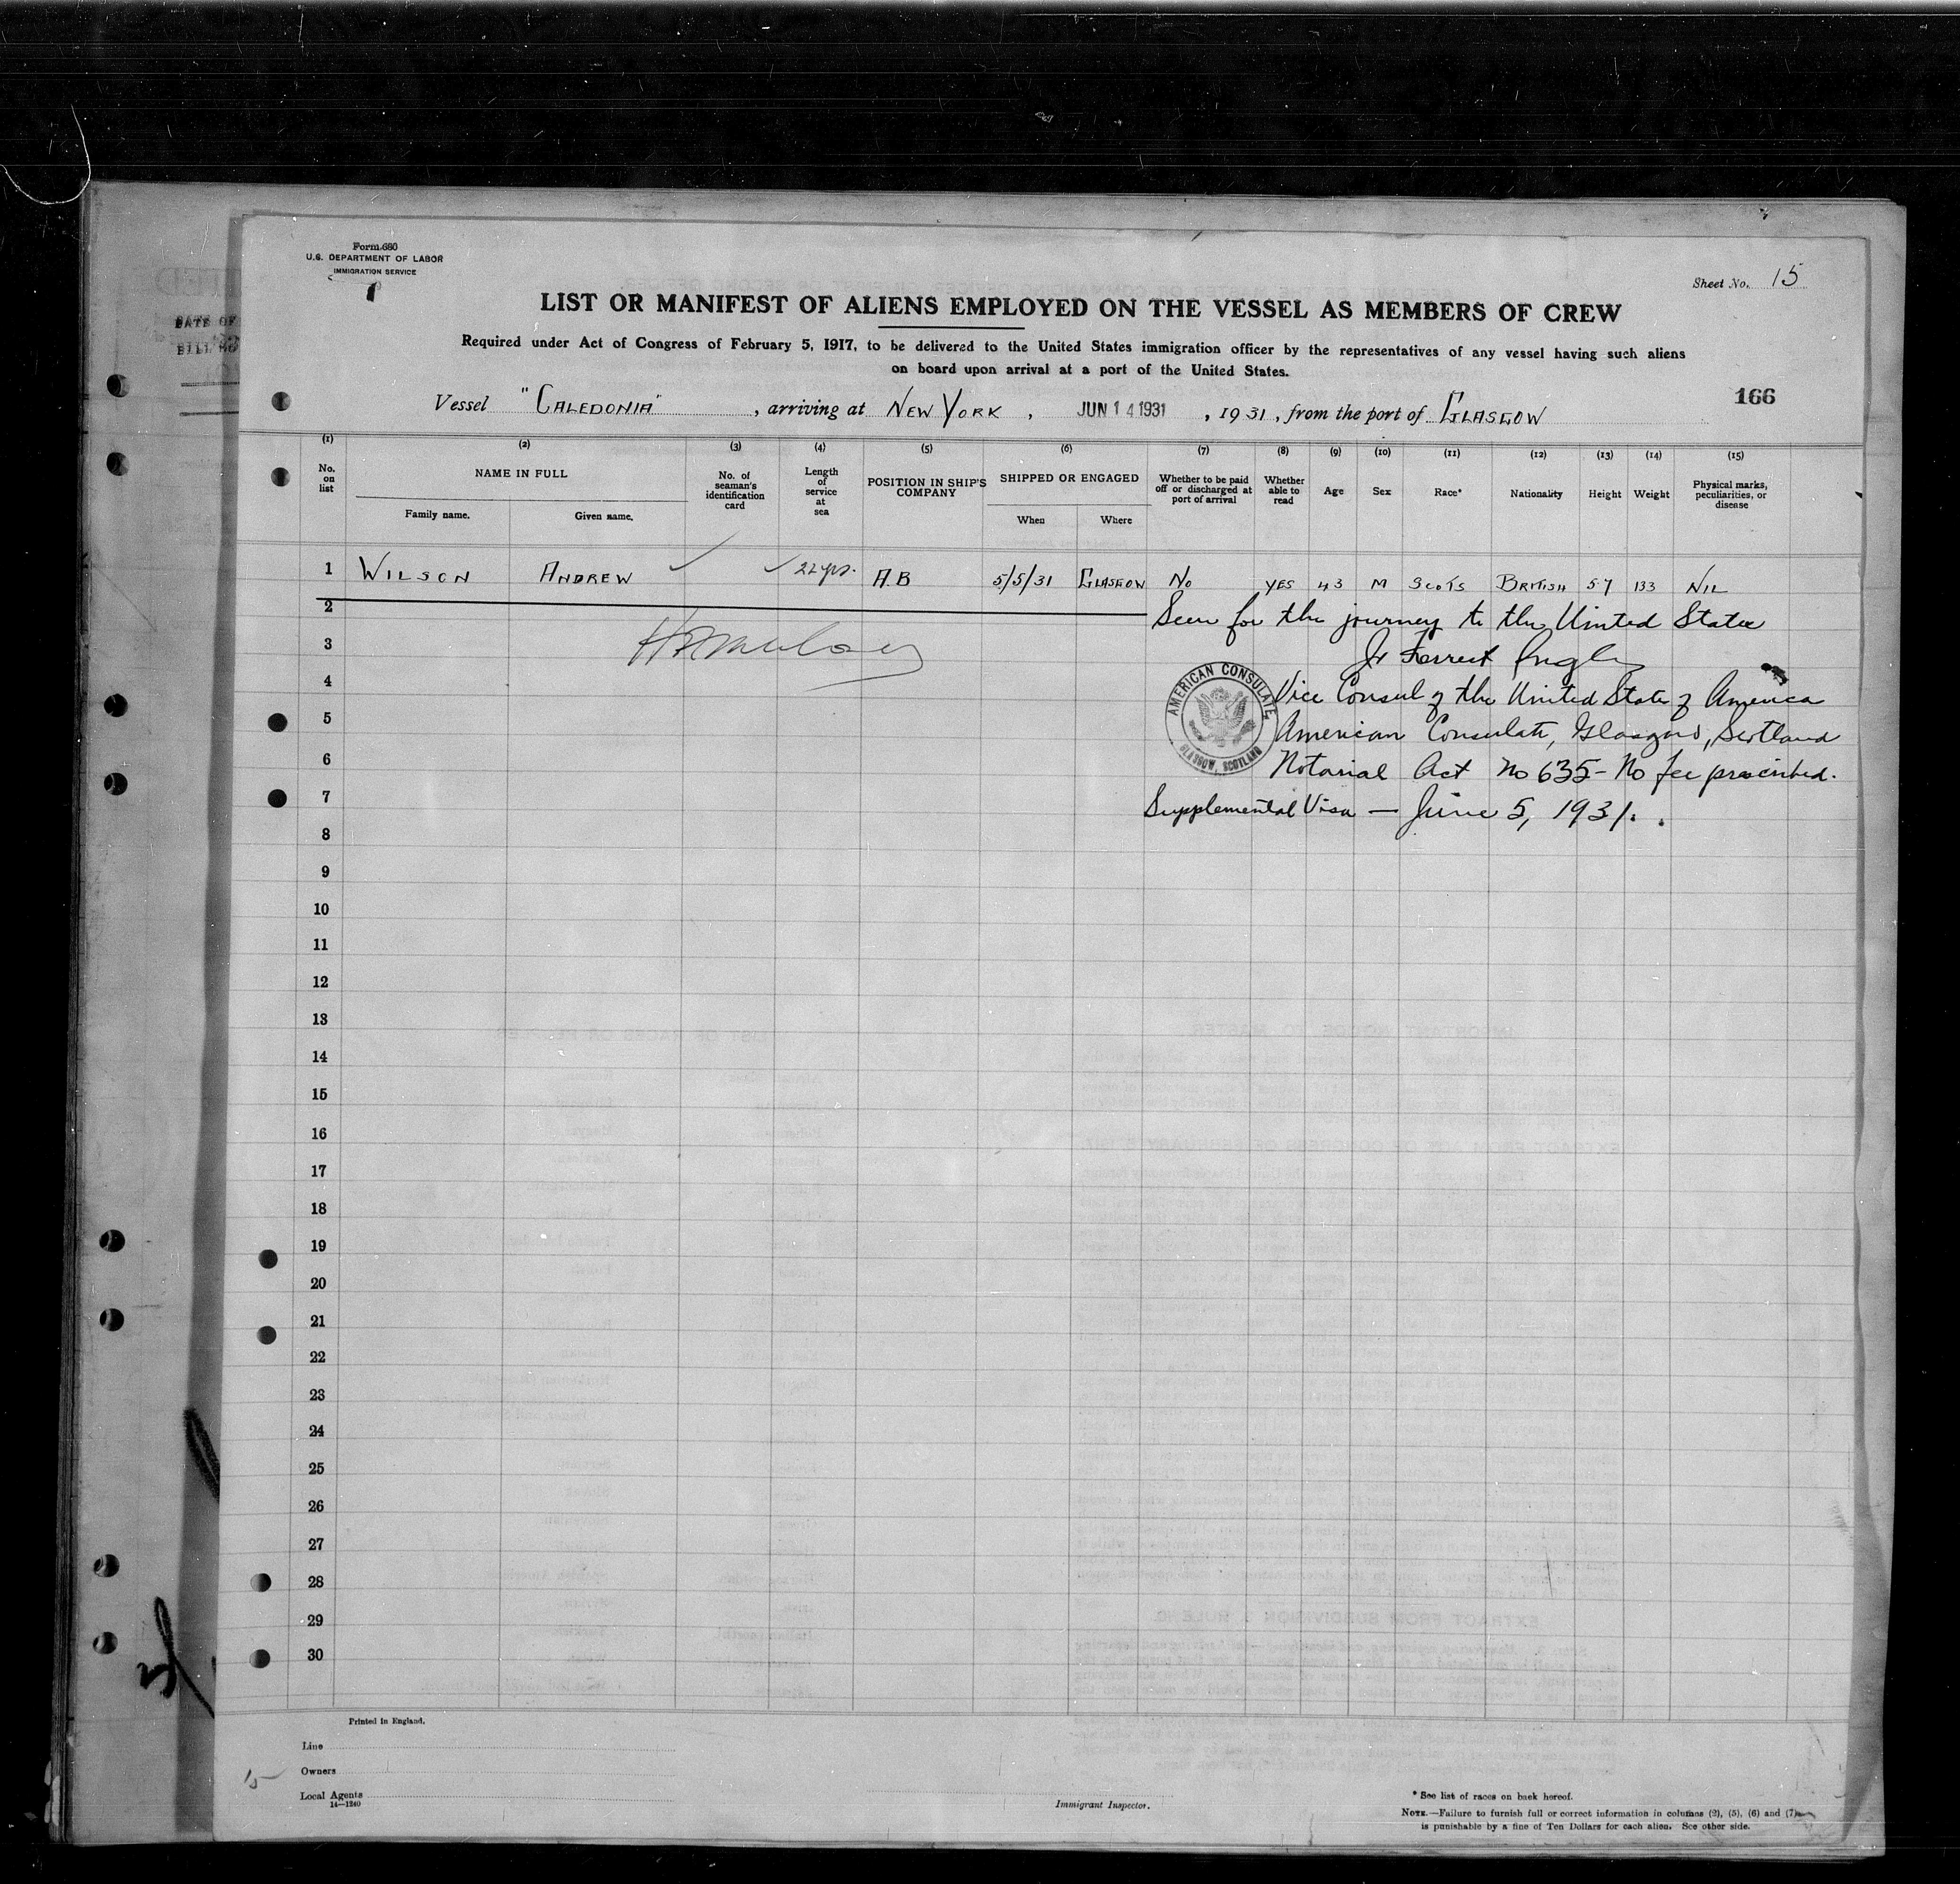 Form 680
U.S. DEPARTMENT OF LABOR
IMMIGRATION SERVICE
Sheet No. 15
LIST OR MANIFEST OF ALIENS EMPLOYED ON THE VESSEL AS MEMBERS OF CREW
DATE OF
Required under Act of Congress of February 5, 1917, to be delivered to the United States immigration officer by the representatives of any vessel having such aliens
on board upon arrival at a port of the United States.
Vessel "CALEDONIA", arriving at NEW YORK, JUN 14 1931, 1931, from the port of GLASGOW
166
(1) (2) (3) (4) (5) (6) (7) (8) (9) (10) (11) (12) (13) (14) (15)
No. on list
NAME IN FULL
Family name. Given name.
No. of seaman's identification card
Length of service at sea
POSITION IN SHIP'S COMPANY
SHIPPED OR ENGAGED
When Where
Whether to be paid off or discharged at port of arrival
Whether able to read
Age
Sex
Race*
Nationality
Height
Weight
Physical marks, peculiarities, or disease
1 WILSON ANDREW 22 yrs. A.B 5/5/31 GLASGOW No YES 43 M SCOTS BRITISH 5.7 133 NIL
2 Seen for the journey to the United States
3
4 Vice Consul of the United States of America
AMERICAN CONSULATE
GLASGOW, SCOTLAND
5 American Consulate, Glasgow, Scotland
6 Notarial Act No 635 - No fee prescribed.
7 Supplemental Visa — June 5, 1931.
8
9
10
11
12
13
14
15
16
17
18
19
20
21
22
23
24
25
26
27
28
29
30
Printed in England.
Line
Owners
15
Local Agents
14—1240
Immigrant Inspector.
* See list of races on back hereof.
NOTE.—Failure to furnish full or correct information in columns (2), (5), (6) and (7)
is punishable by a fine of Ten Dollars for each alien. See other side.